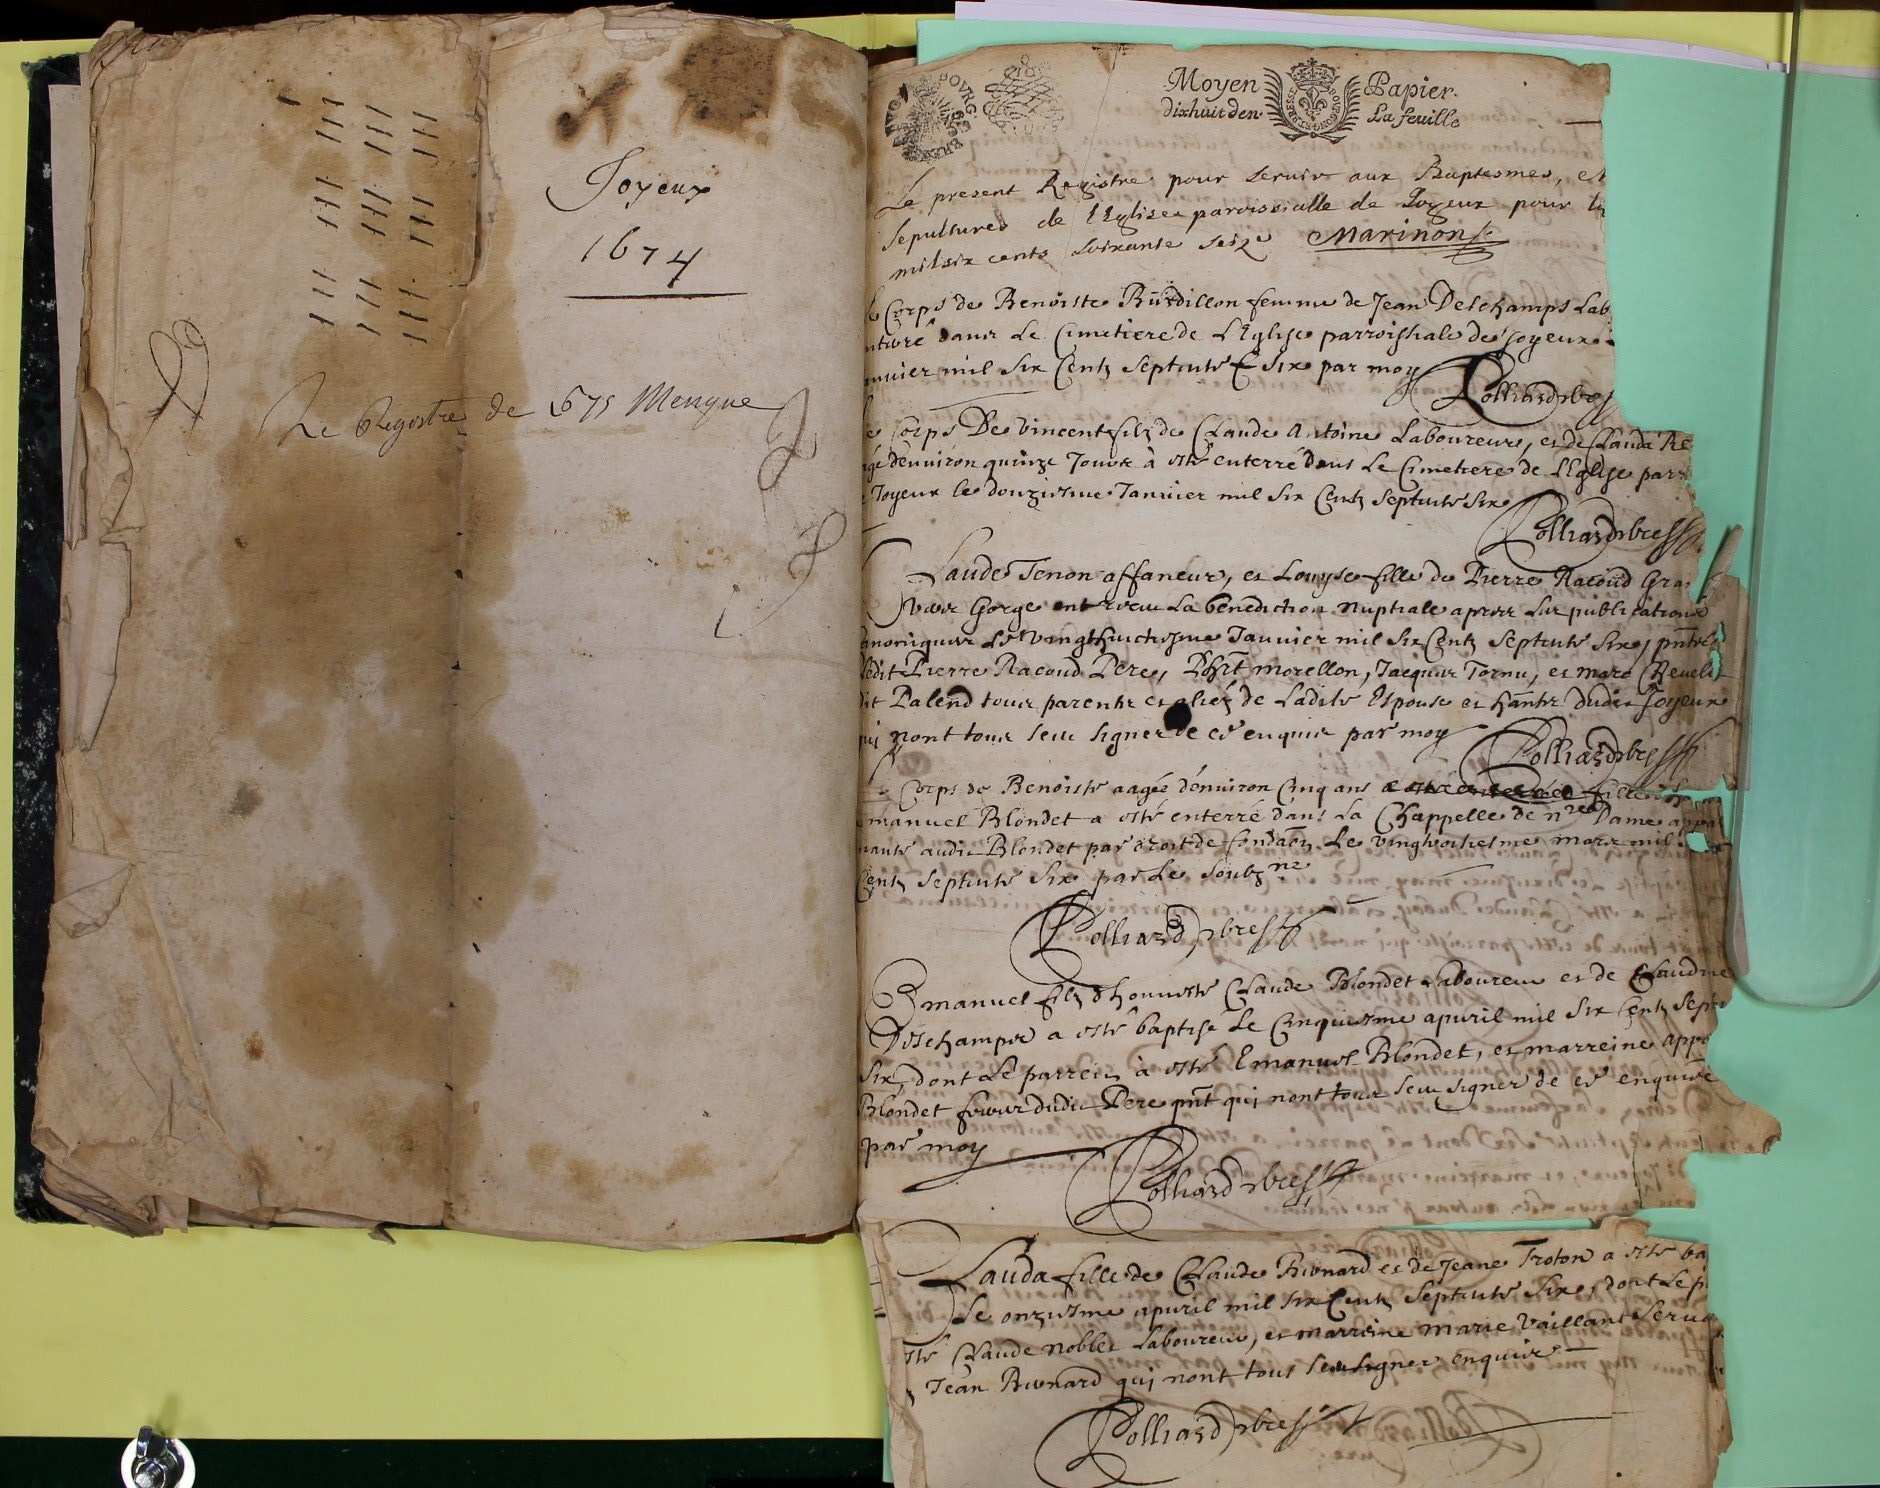 Joyeux
1674
Le Registre de 1675 Menque
Moyen Papier
dixhuit den La feuille
Le present Registre pour servir aux Baptesmes, et
sepultures de l'Eglise parroissialle de Joyeux pour
mil six cents soixante seize Marinon
Corps de Benoiste Burdillon femme de Jean Deschamps Lab
dans Le Cimetiere de L'Eglise parroissiale de Joyeux
mil six Centz septante & Six par moy
Polliard pbre
Corps De Vincent filz de Claude Antoine Laboureur, et de Clauda Re
d'environ quinze Jours à esté enterré dans Le Cimetiere de L'Eglise parr
Joyeux le douziesme Janvier mil Six Centz septante six
Polliard pbre
Claude Tenon affaneur, et Louyse fille de Pierre Racoud Gra
Gorge ont receu La benediction nuptiale apres Les publications
Le vingthuictiesme Janvier mil six Centz septante six, pntz
Ledit Pierre Racoud Pere, Phit morellon, Jacques Tornu, et marc Revel
dit Palend tous parents et aliez de Ladite Espouse et hants dudit Joyeux
qui nont tous sceu signer de ce enquis par moy
Polliard pbre
Corps de Benoiste aagée d'environ Cinq ans a esté enterrée fille
Emanuel Blondet a esté enterré dans La Chappelle de nre Dame appa
nante audit Blondet par droit de fondaon Le vinghuitiesme mars mil
Centz septante Six par Le soubzne
Polliard pbre
Emanuel filz d'honneste Claude Blondet Laboureur et de Claudine
Deschamps a esté baptisé Le Cinquiesme apuril mil Six Centz septa
six, dont Le parrein à esté Emanuel Blondet, et marreine
Blondet soeur dudit Pere pnt qui nont tous sceu signer de ce enquis
par moy
Polliard pbre
Clauda fille de Claude Bernard et de Jeane Troton a esté ba
Le onziesme apuril mil six Centz septante Six, dont Le p
esté Claude noblet Laboureur, et marreine marie Vaillant serva
Jean Bernard qui nont tous sceu signer enquis
Polliard pbre